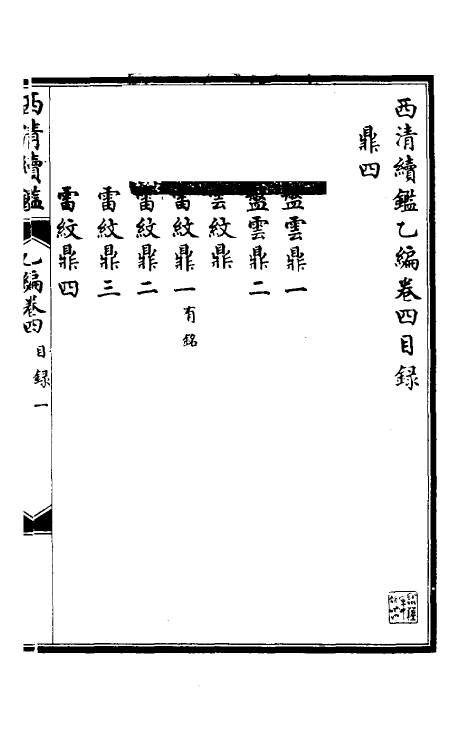 西清續鑑乙編卷四目録
鼎四
盤雲鼎一
盤雲鼎二
雲紋鼎
雷紋鼎一 有銘
雷紋鼎二
雷紋鼎三
雷紋鼎四
西清續鑑 乙編卷四 目録 一